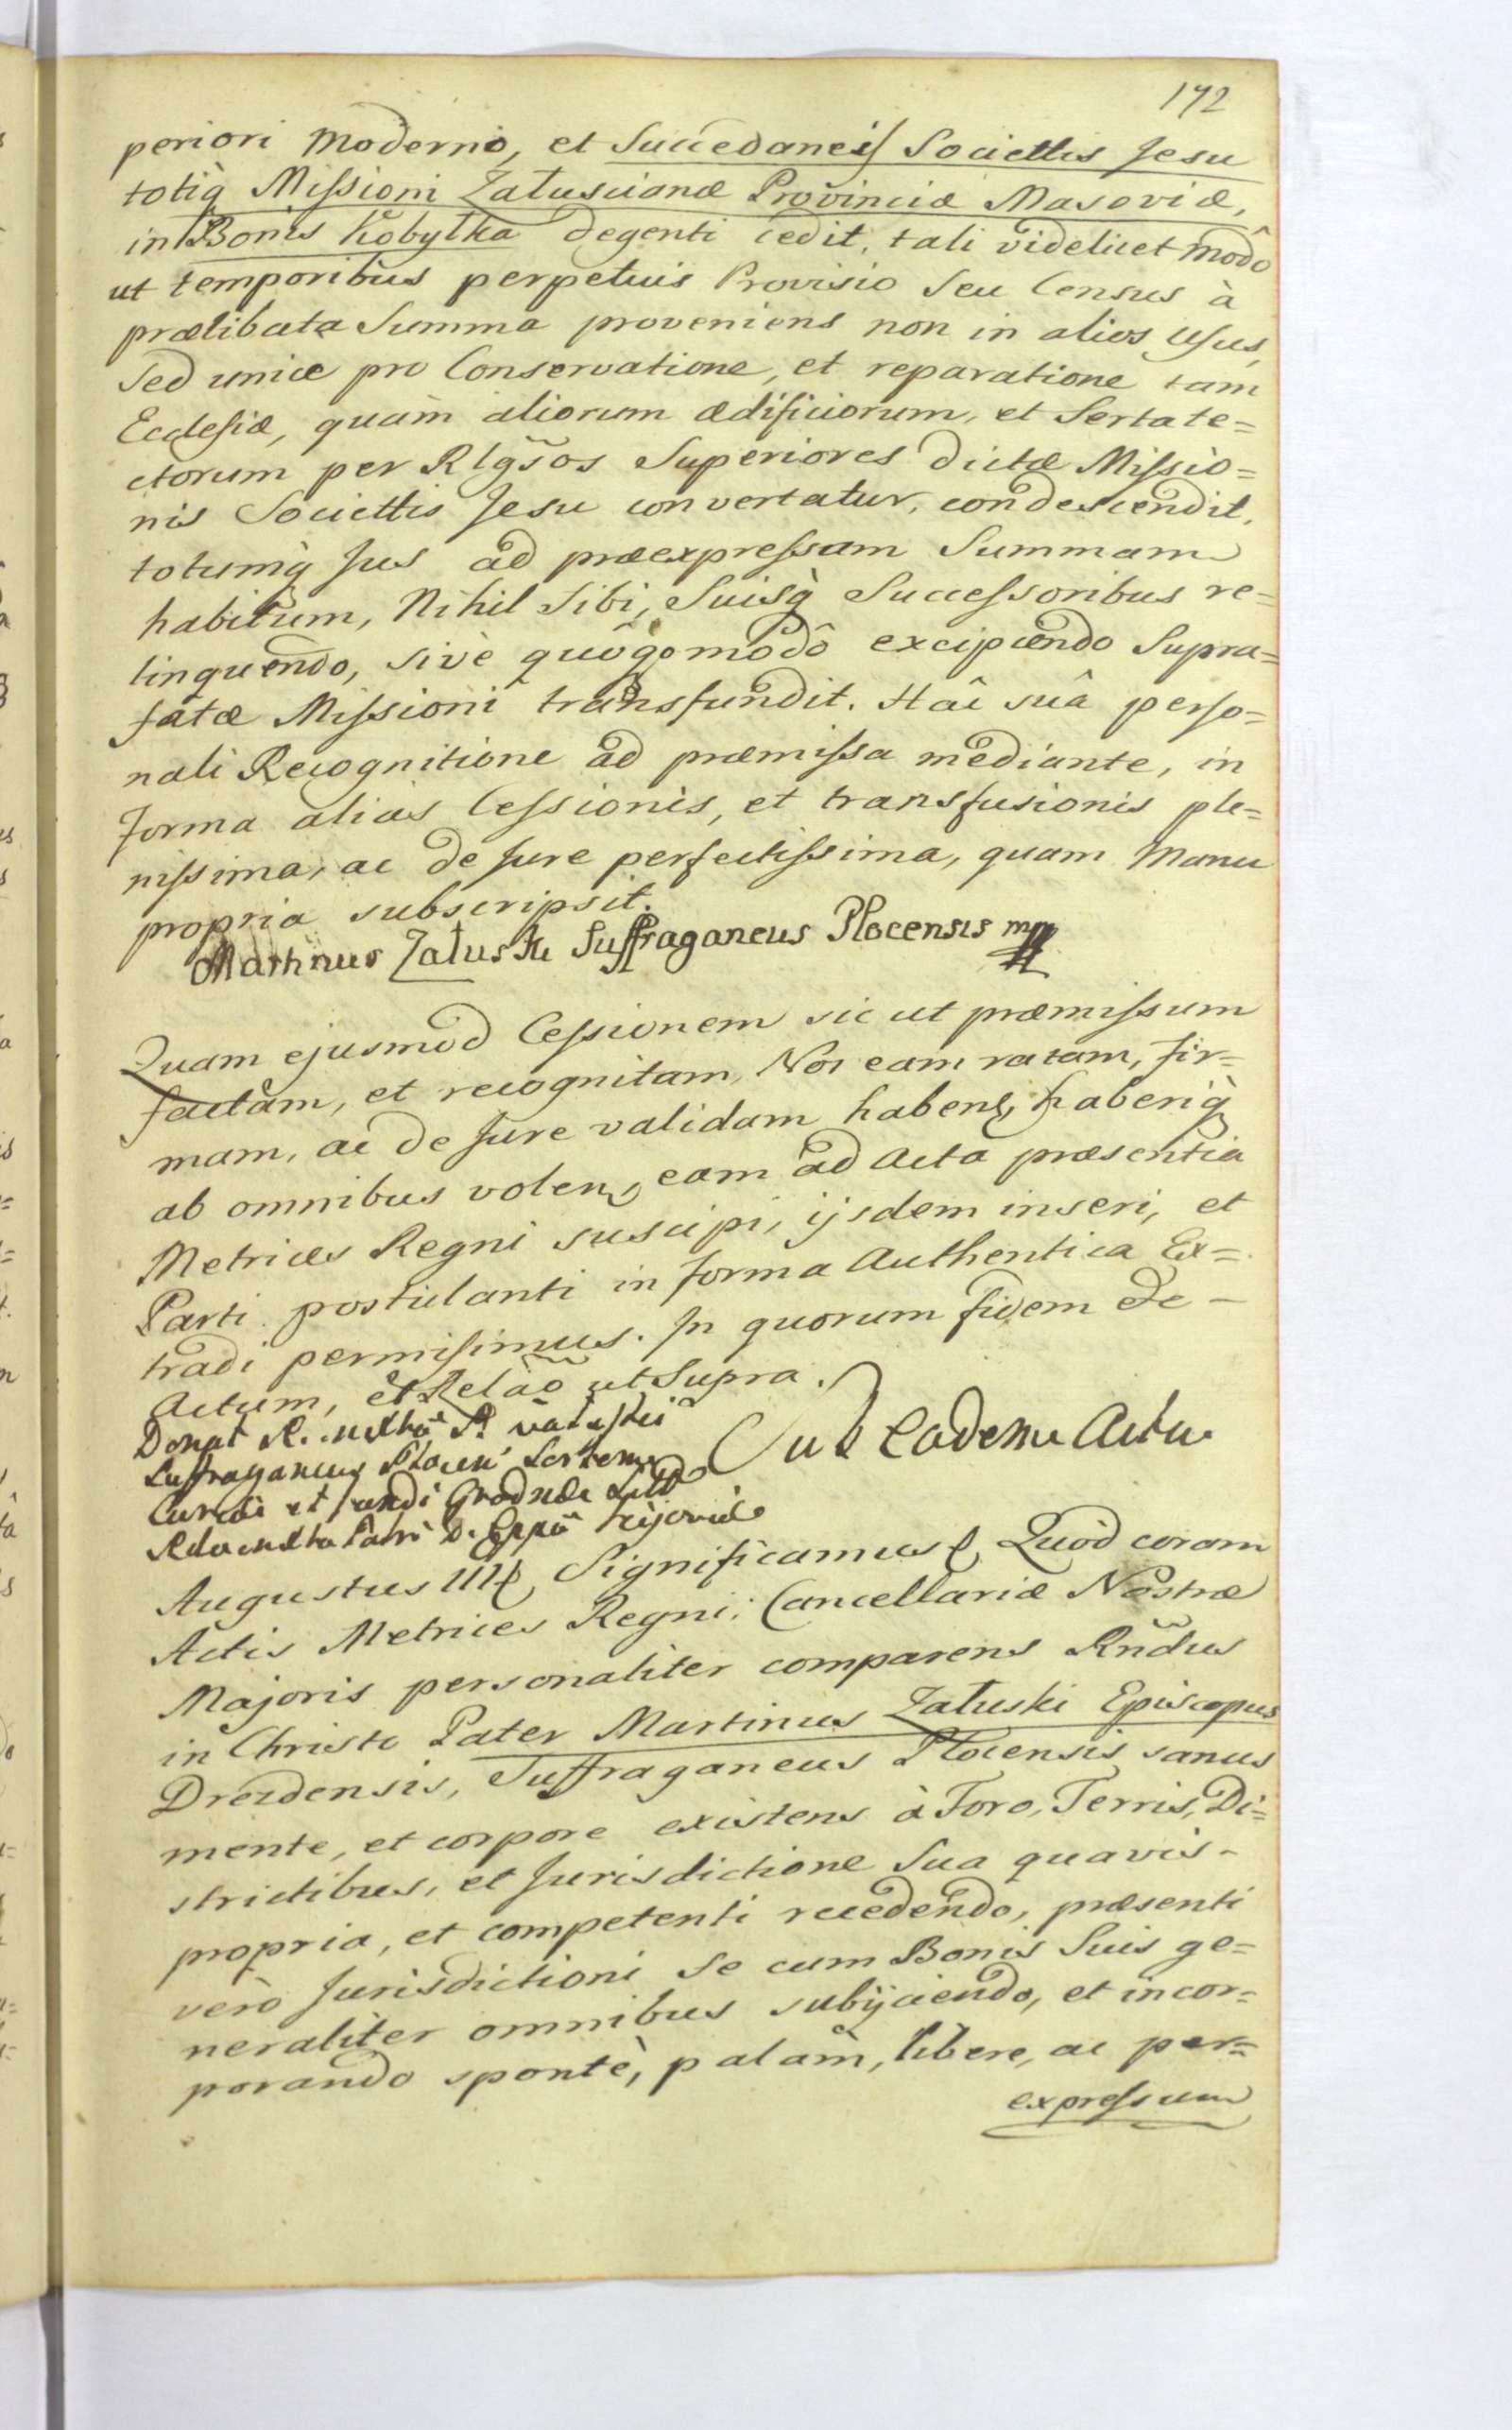 192
periori moderno, et Succedaneis Societtis Jesu
totiq̀ Missioni Załuscianæ Provinciæ Masoviæ,
in Bonis Kobyłka degenti cedit, tali videlicet modô
ut temporibus perpetuis Provisio Seu Census à
prælibata Summa proveniens non in alios Usus,
Sed unicè pro Conservatione, et reparatione tam
Ecclesiæ, quàm aliorum ædificiorum, et Sertate=
ctorum per Rlgs̃os Superiores dictæ Missio=
nis Societtis Jesu convertatur, condescendit,
totumq̀ Jus ad præexpressam Summam
habitum, Nihil Sibi, Suisq̀ Successoribus re=
linquendo, sivè quôqo modô excipiendo Supra=
fatæ Missioni transfundit. Hâc suâ perso=
nali Recognitione ad præmissa mediante, in
forma alias Cessionis, et transfusionis ple=
nissima, ac de Jure perfectissima, quam Manu
propria subscripsit.
Martinus Załuski Suffraganeus Plocensis mp
Quam ejusmod Cessionem sic ut præmissum
factam, et recognitam, Nos eam ratam, fir=
mam, ac de Jure validam haben, haberiq̀
ab omnibus volen, eam ad Acta præsentia
Metrices Regni suscipi, ijsdem inseri, et
Parti postulanti in forma Authentica Ex=
tradi permisimus. In quorum fidem &c –
Actum, et Relão ut Supra.
Donat R.
Suffraganeus
Curiæ et fundi Grodnæ
Sub Eadem Actu
Augustus III, Significamus, Quòd coram
Actis Metrices Regni Cancellariæ Nostræ
Majoris personaliter comparens Rñdus
in Christo Pater Martinus Załuski Episcopus
Drezdensis, Suffraganeus Plocensis sanus
mente, et corpore existens à Foro, Terris, Di=
strictibus, et Jurisdictione Sua quavis –
propria, et competenti recedendo, præsenti
verò Jurisdictioni Se cum Bonis Suis ge=
neraliter omnibus subijciendo, et incor=
porando spontè, palàm, libere, ac per=
expressum